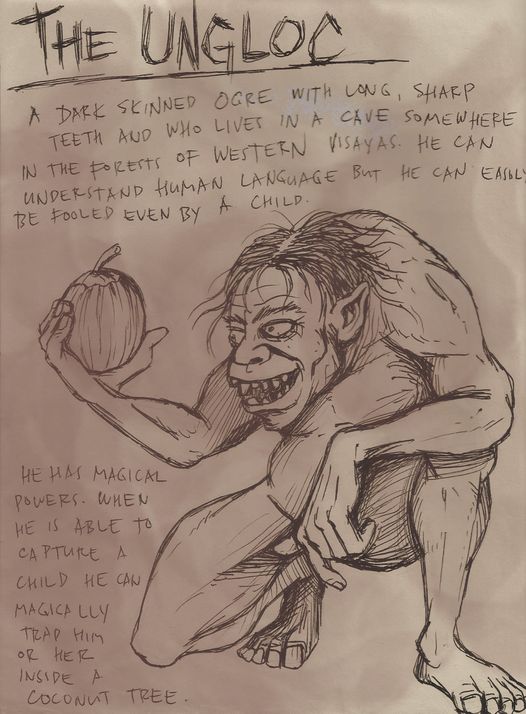 THE UNGLOC
A DARK SKINNED OGRE WITH LONG, SHARP
TEETH AND WHO LIVES IN A CAVE SOMEWHERE
IN THE FORESTS OF WESTERN VISAYAS. HE CAN
UNDERSTAND HUMAN LANGUAGE BUT HE CAN EASILY
BE FOOLED EVEN BY A CHILD.
HE HAS MAGICAL
POWERS. WHEN
HE IS ABLE TO
CAPTURE A
CHILD HE CAN
MAGICALLY
TRAP HIM
OR HER
INSIDE A
COCONUT TREE.